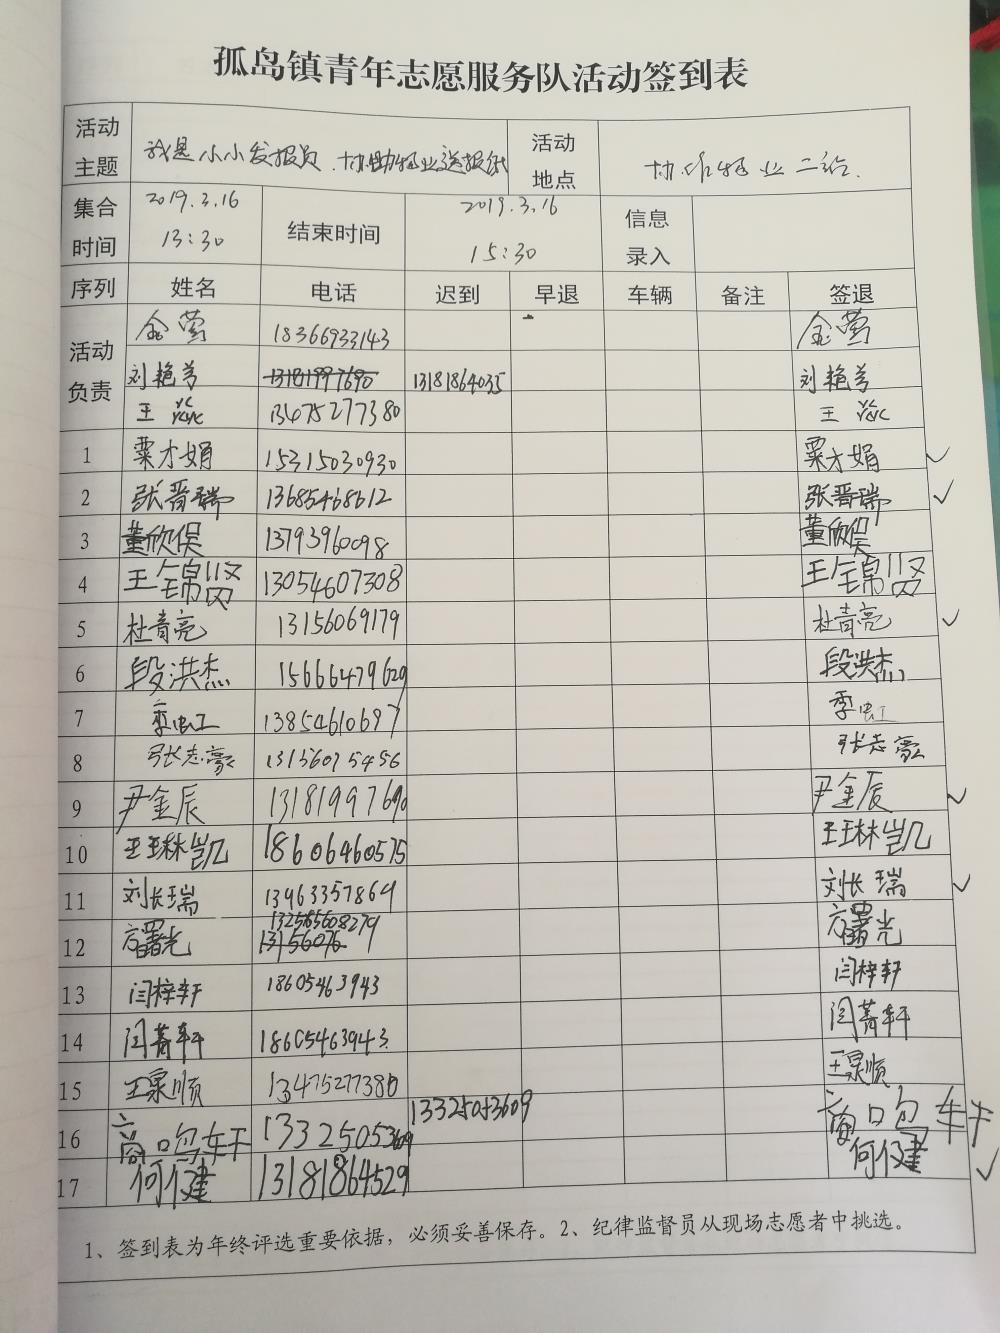 孤岛镇青年志愿服务队活动签到表
活动主题 我是小小发报员、协助物业送报纸 活动地点 协作物业二站.
集合时间 2019.3.16 13:30 结束时间 2019.3.16 15:30 信息录入
序列 姓名 电话 迟到 早退 车辆 备注 签退
活动负责 金莺 18366933143 金莺
刘艳芳 13181997690 13181864035 刘艳芳
王 13475277380 王
1 粟才娟 15315030930 粟才娟 ✓
2 张晋瑞 13685468612 张晋瑞 ✓
3 董欣俣 13793960098 董欣俣
4 王锦贤 13054607308 王锦贤
5 杜青亮 13156069179 杜青亮 ✓
6 段洪杰 15666479629 段洪杰
7 季虹 13854610697 季虹
8 张志豪 13156075456 张志豪
9 尹金辰 13181997690 尹金辰 ✓
10 王玉林凯 18606460575 王玉林凯
11 刘长瑞 13963357864 刘长瑞 ✓
12 方曙光 13156076 方曙光
13 闫梓轩 18605463943 闫梓轩
14 闫菁轩 18605463943 闫菁轩
15 王泉顺 13475277380 王泉顺
16 商鸣轩 13325053609 13325053609 商鸣轩
17 何仅建 13181864529 何仅建 ✓
1、签到表为年终评选重要依据，必须妥善保存。2、纪律监督员从现场志愿者中挑选。